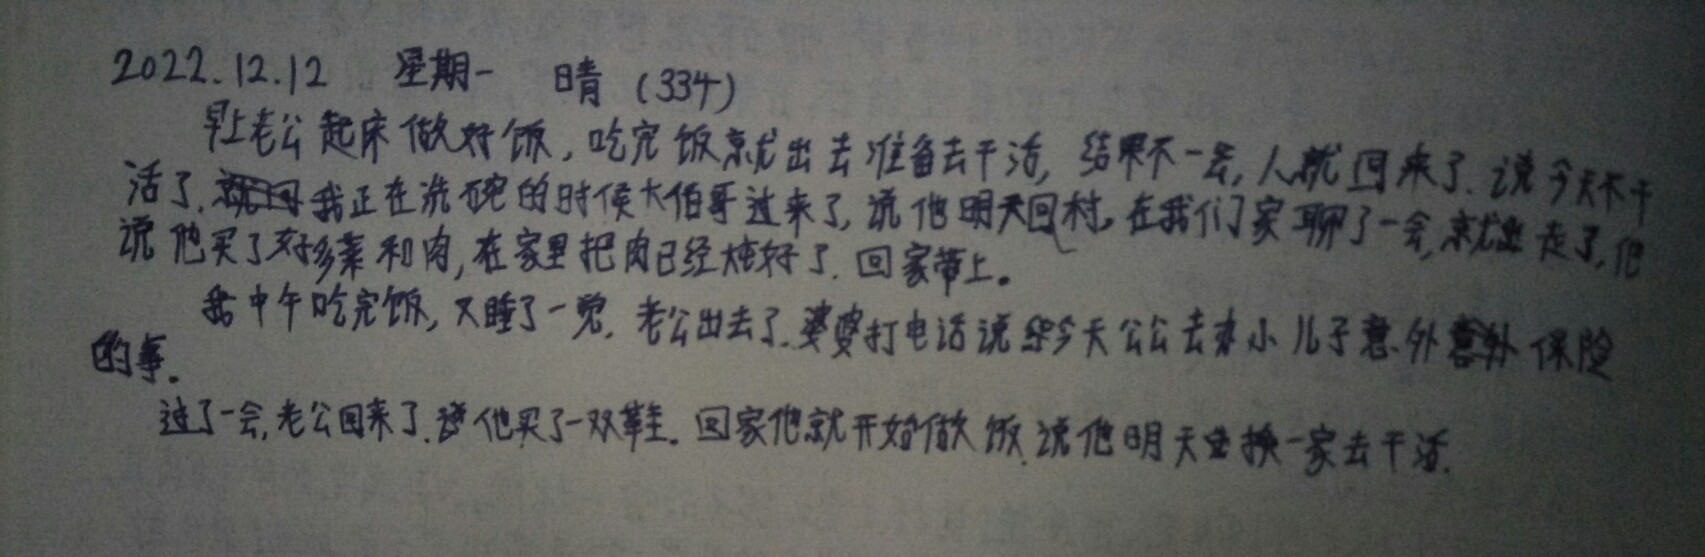 2022.12.12 星期一 晴 (334)
早上老公起床做好饭,吃完饭就出去准备去干活,结果不一会,人就回来了.说今天不干
活了.我正在洗碗的时候大伯哥过来了,说他明天回村,在我们家聊了一会,就走了,他
说他买了好多菜和肉,在家里把肉已经炖好了.回家带上。
我中午吃完饭,又睡了一觉.老公出去了.婆婆打电话说今天公公去办小儿子意外保险
的事.
过了一会,老公回来了.说他买了一双鞋。回家他就开始做饭.说他明天换一家去干活.